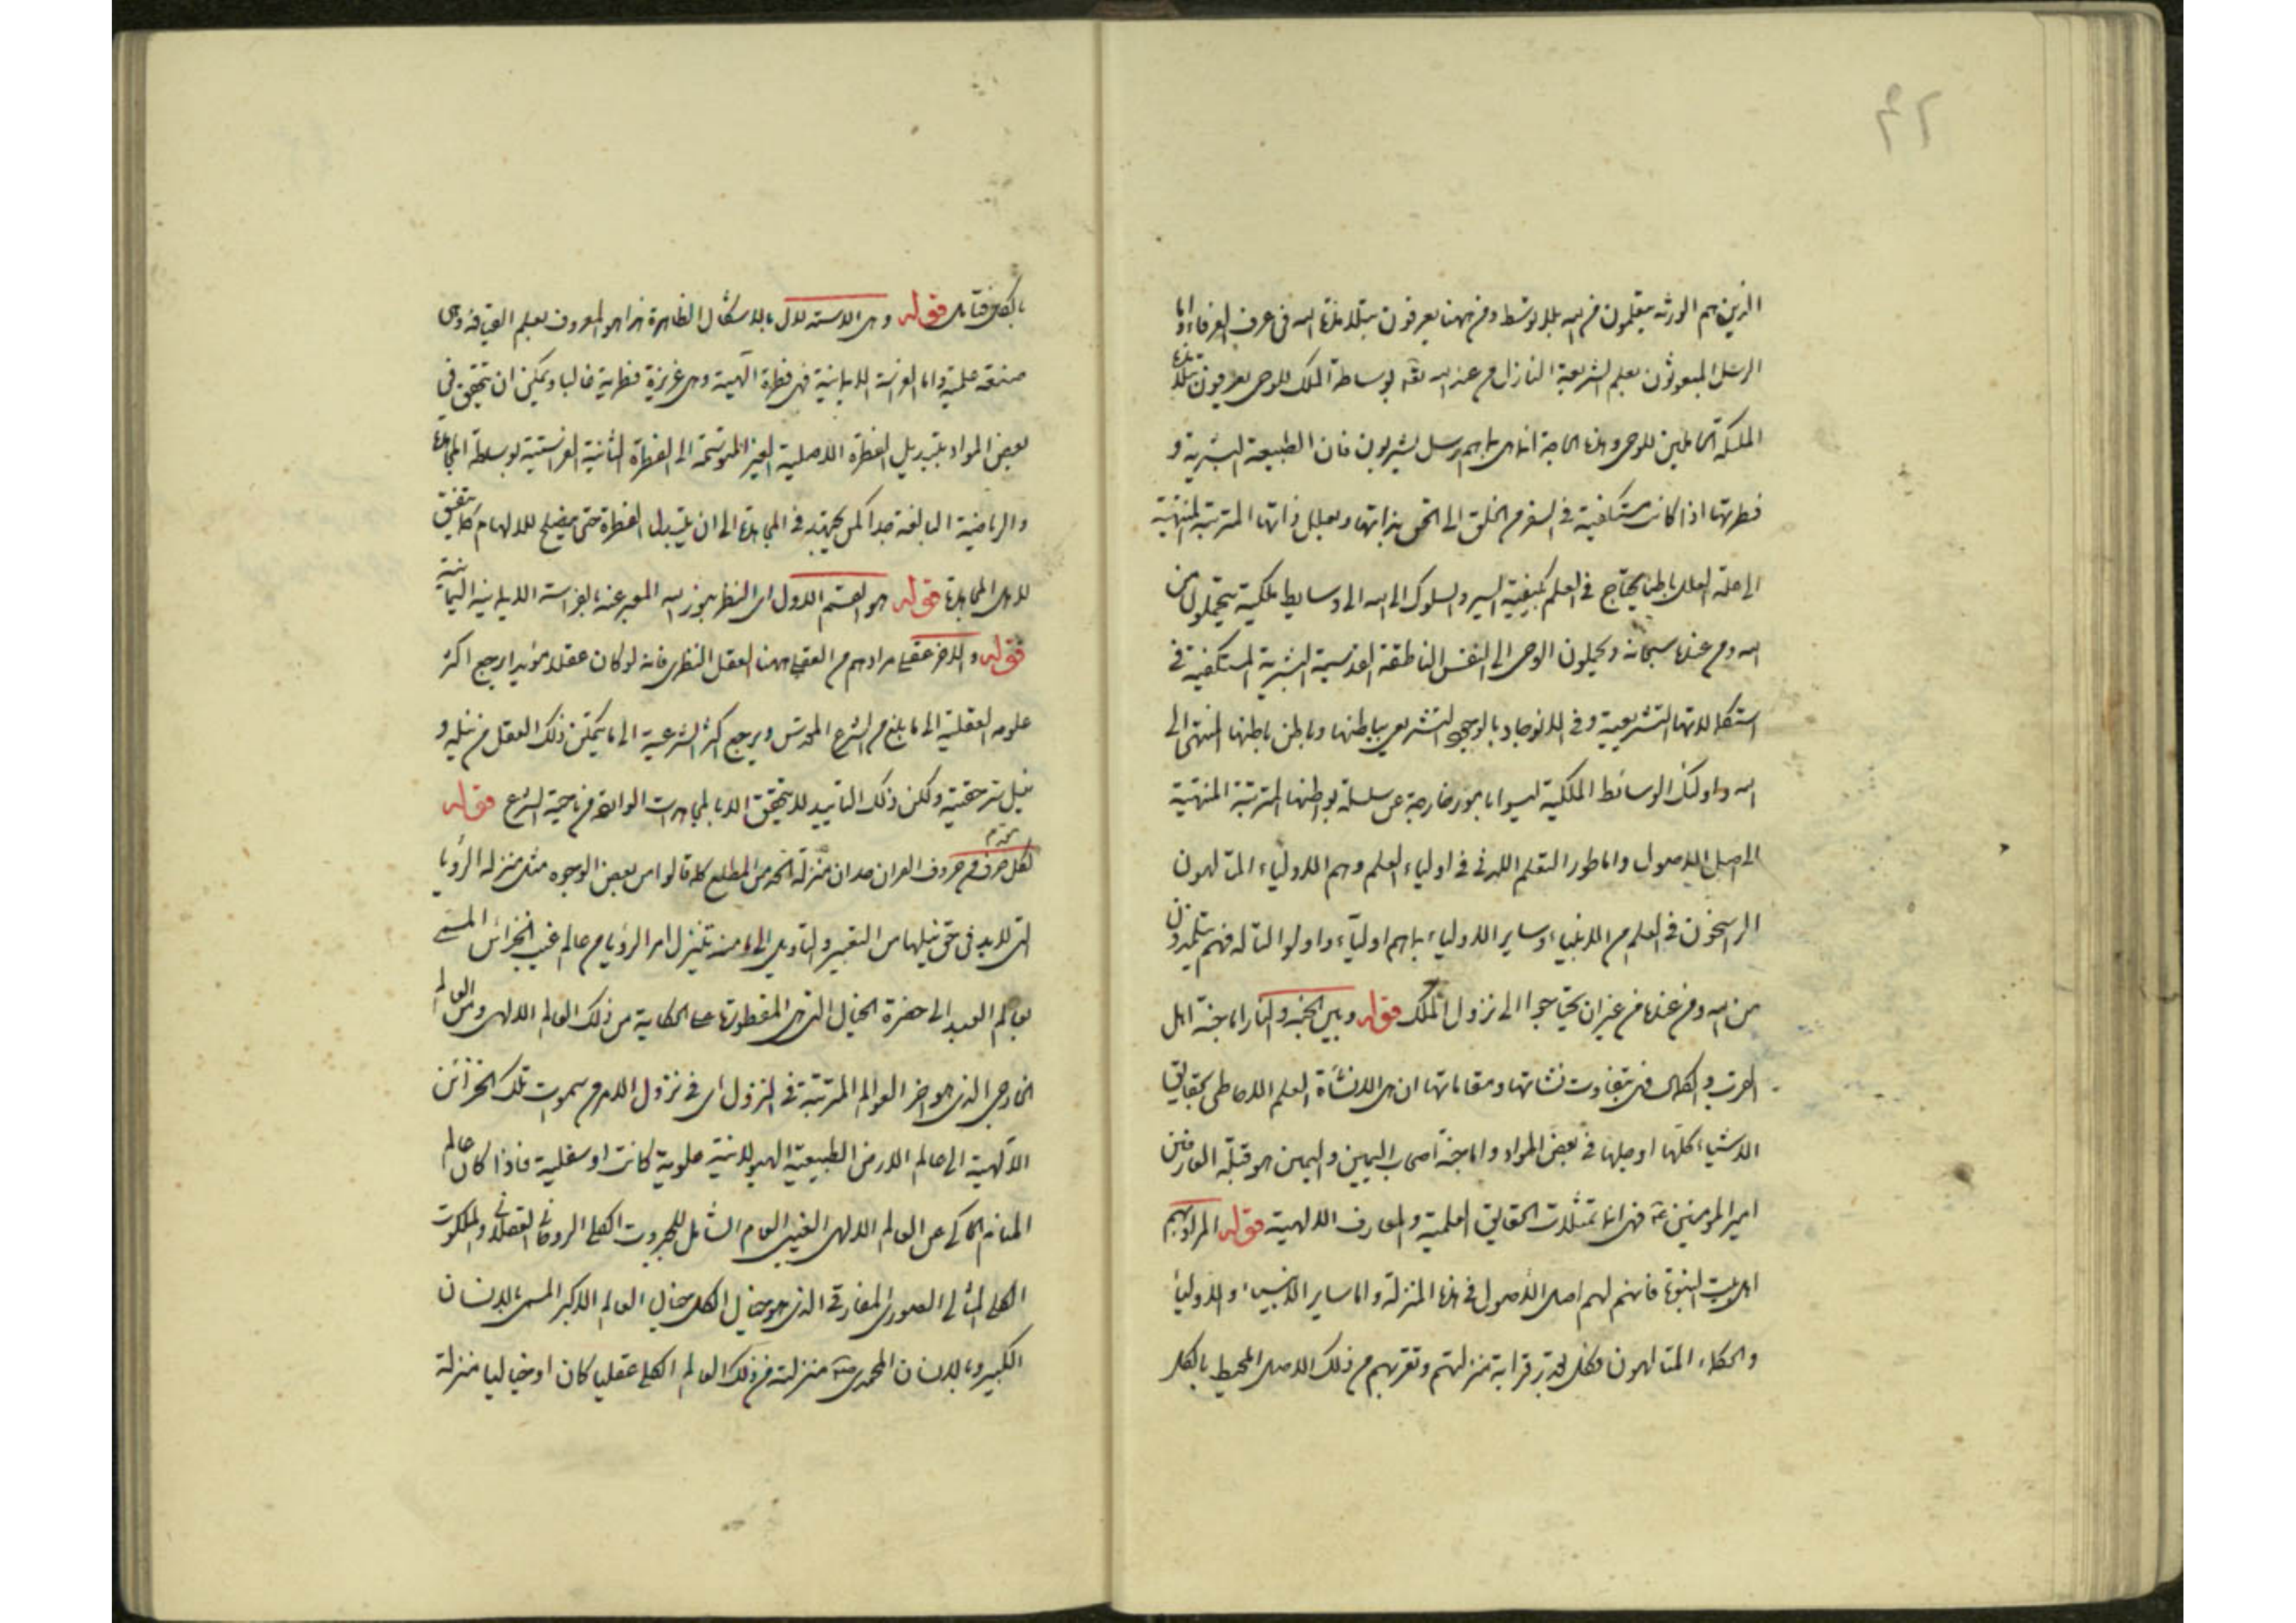 ٤٢
الذين هم الورثه يتعلمون من الله بلا توسط ومن ههنا يعرفون بتلامذة الله فى عرف العرفاء واما
الرسل المبعوثون بعلم الشريعة النازل من عند الله تعالى بوساطة الملك للوحى يعرفون بتلامذة
الملئكة الحاملين للوحى وهذه الحاجة انما هى بما هم رسل بشريون فان الطبيعة البشرية و
فطرتها اذا كانت مستكفية فى السفر من الخلق الى الحق بذاتها وبعلل ذاتها المترتبة المنتهية
الى علة العلل باطنا يحتاج فى العلم بكيفية السير والسلوك الى الله الى وسايط ملكية يتحملون من
الله ومن عنده سبحانه ويحملون الوحى الى النفس الناطقة القدسية البشرية المستكفية فى
استكمالاتها التشريعية وفى الانوجاد بالوجود التشريعى بباطنها وباطن باطنها المنتهى الى
الله واولئك الوسائط الملكية ليسوا بامور خارجة عن سلسلة بواطنها المترتبة المنتهية
الى اصل الاصول واما طور التعلم اللدنى فى اولياء العلم وهم الاولياء المتألهون
الراسخون فى العلم من الانبياء وساير الاولياء بما هم اولياء واولو التأله فهم يتلمذون
من الله ومن عنده من غير ان يحتاجوا الى نزول الملك قوله وبين الجنة والنار اما جنة اهل
القرب والكمال فهى بتفاوت نشاتها ومقاماتها ان هى الا نشأة العلم الاحاطى بحقايق
الاشياء كلها او جلها فى بعض المواد واما جنة اصحاب اليمين واليمين هو قبلة العارفين
امير المؤمنين ع فهى انما تمثلات الحقايق العلمية والمعارف الالهية قوله المراد بهم
اهل بيت النبوة فانهم لهم اصل الاصول فى هذه المنزلة واما ساير الانبياء والاولياء
والحكماء المتألهون فكل بقدر قرابة منزلتهم وتقربهم من ذلك الاصل المحيط بالكل
بالكل فتأمل قوله وهى الاستدلال بالاشكال الظاهرة هذا هو المعروف بعلم القيافة وهى
صنعة علمية واما الفراسة الايمانية فهى فطرة الهية وهى غريزة فطرية غالبا ويمكن ان يتحقق فى
بعض المواد بتبديل الفطرة الاصلية الغير المتوسمة الى الفطرة الثانية الفراستية بوساطة المجاهدة
والرياضية البالغة جدا كمن يجتهد فى المجاهدة الى ان يتبدل الفطرة حتى يصلح للالهام كما يتفق
لاهل المجاهدة قوله هو القسم الاول اى النظر بنور الله المعبر عنه بالفراسة الايمانية اليمانية
قوله والاخر عقلى مرادهم من العقل ههنا العقل النظرى فانه لو كان عقلا مؤيدا يرجع اكثر
علومه العقلية الى ما بلغ من الشرع المقدس ويرجع اكثر الشرعية الى ما يتمكن ذلك العقل من نيله و
نيل سر حقيته ولكن ذلك التاييد لا يتحقق الا بالمجاهدات الواردة من ناحية الشرع قوله
لكل حرف من حروف القران حد ان منزلة الحد من المطلع كما قالوا من بعض الوجوه مثل منزلة الرؤيا
التى لا بد فى حق نيلها من التعبير والتأويل الى ما منه تنزل امر الرؤيا من عالم غيب الخزائن المسمى
بعالم العبد الى حضرة الخيال التى هى المفطورة على الحكاية من ذلك العالم الالهى ومن العالم
الخارجى الذى هو اخر العوالم المترتبة فى النزول اى فى نزول الامر من سموات تلك الخزائن
الالهية الى عالم الارض الطبيعية الهيولانية علوية كانت او سفلية فاذا كان عالم
المنام الحاكى عن العالم الالهى الغيبى العام الشامل للجبروت الكلى الروحانى العقلانى والملكوت
الكلى المثالى الصورى المفارقى الذى هو خيال الكل خيال العالم الاكبر المسمى بالانسان
الكبير وبالانسان المحمدى ص منزلته من ذلك العالم الكلى عقليا كان او خياليا منزلة